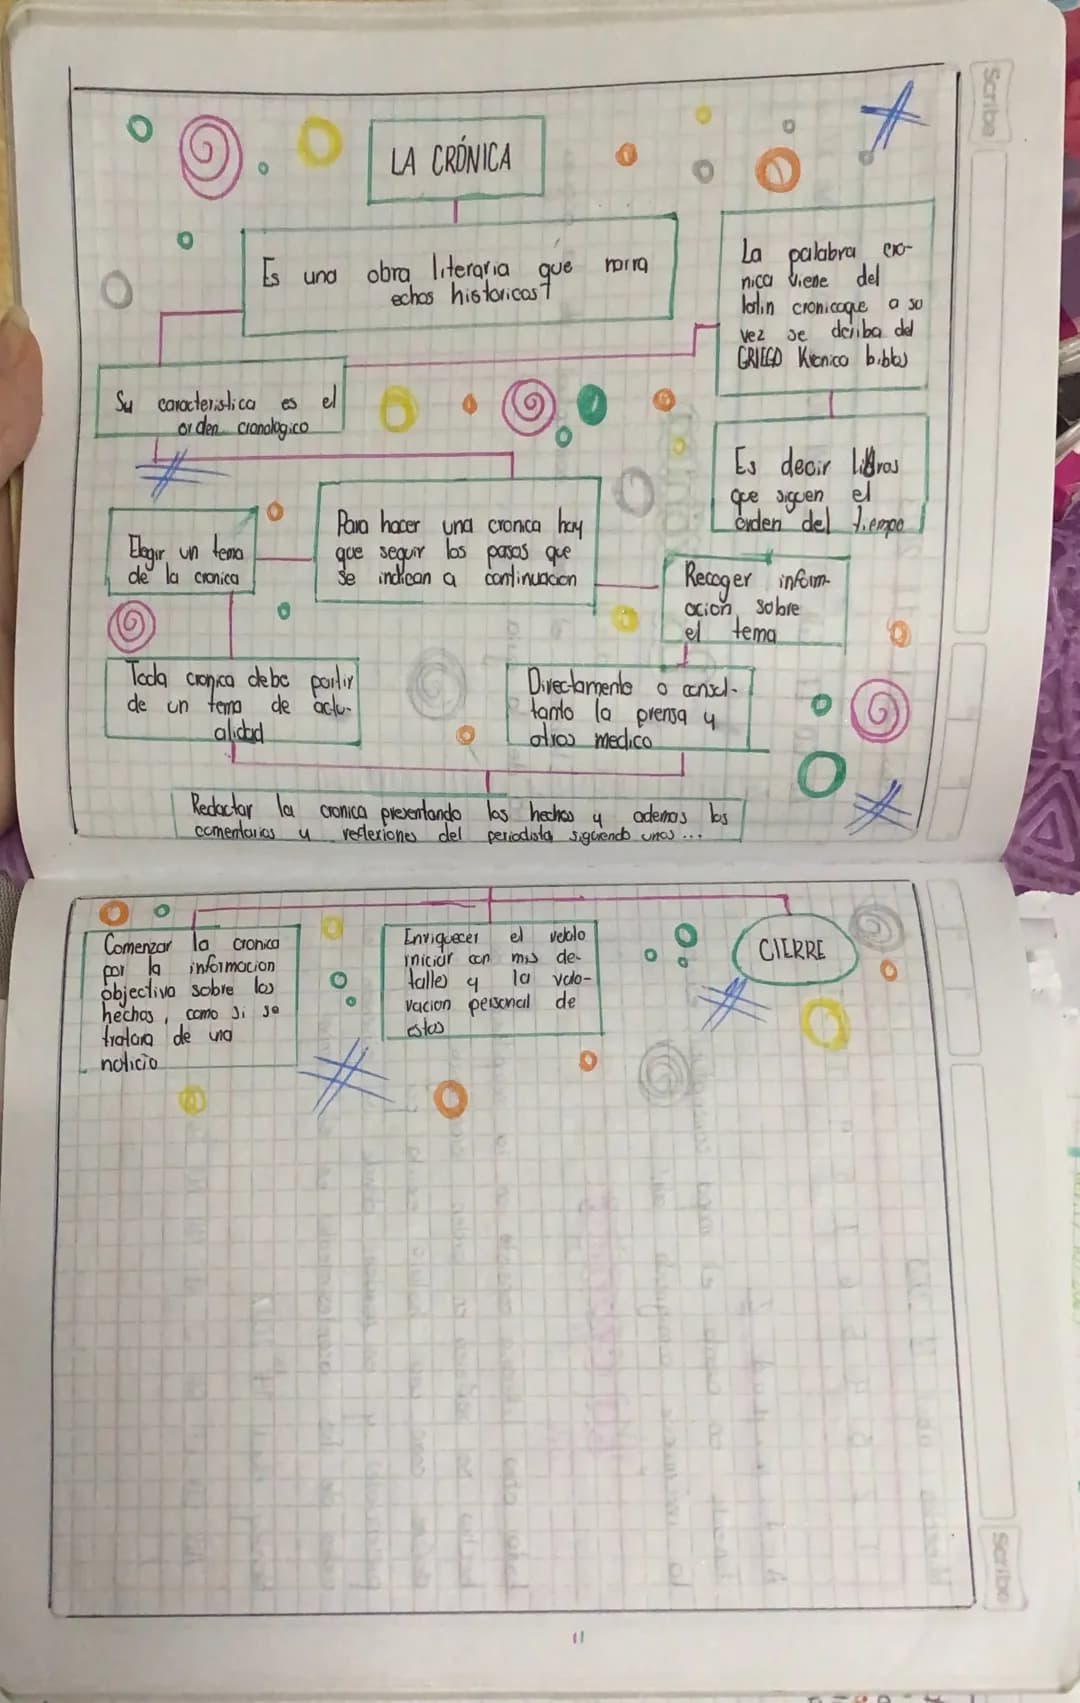 LA CRÓNICA
Es una obra literaria que narra
echos historicos
La palabra cro-
nica viene del
latin cronicaque a su
vez se deriba del
GRIEGO Kronico biblos
Su caracteristica es el
orden cronologico
Es decir libros
que siguen el
orden del tiempo
Elegir un tema
de la cronica
Para hacer una cronica hay
que seguir los pasos que
se indican a continuacion
Recoger inform-
acion sobre
el tema
Toda cronica debe partir
de un tema de actu-
alidad
Directamente o consul-
tanto la prensa y
otros medico
Redactar la cronica presentando los hechos y ademas los
comentarios y reflexiones del periodista siguiendo unos...
Comenzar la cronica
por la informacion
objectiva sobre los
hechos, como si se
tratara de una
noticia
Enriquecer el
iniciar con mis de-
talles y la valo-
racion personal de
estos
CIERRE
Scribe
Scribe
11